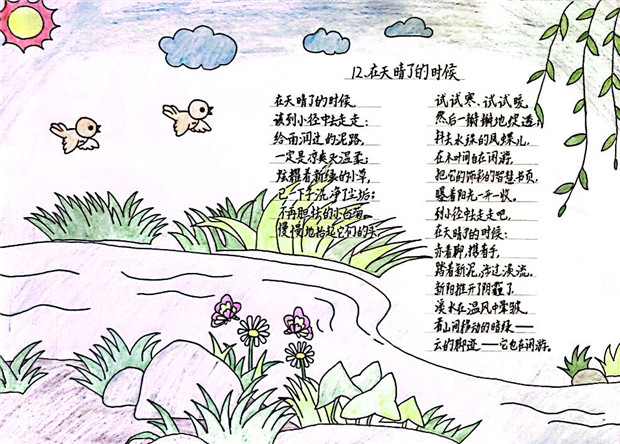 12.在天晴了的时候
在天晴了的时候
该到小径中去走走：
给雨润过的泥路，
一定是凉爽又温柔；
炫耀着新绿的小草，
已一下子洗净尘垢；
不再胆怯的小白菊，
慢慢地抬起它们的头，
试试寒，试试暖，
然后一瓣瓣地绽透；
抖去水珠的凤蝶儿，
在木叶间自在闲游，
把它的饰彩的智慧书页，
曝着阳光一开一收。
到小径中去走走吧，
在天晴了的时候：
赤着脚，携着手，
踏着新泥，涉过溪流。
新阳推开了阴霾了，
溪水在温风中晕皱，
看山间移动的暗绿——
云的脚迹——它也在闲游。